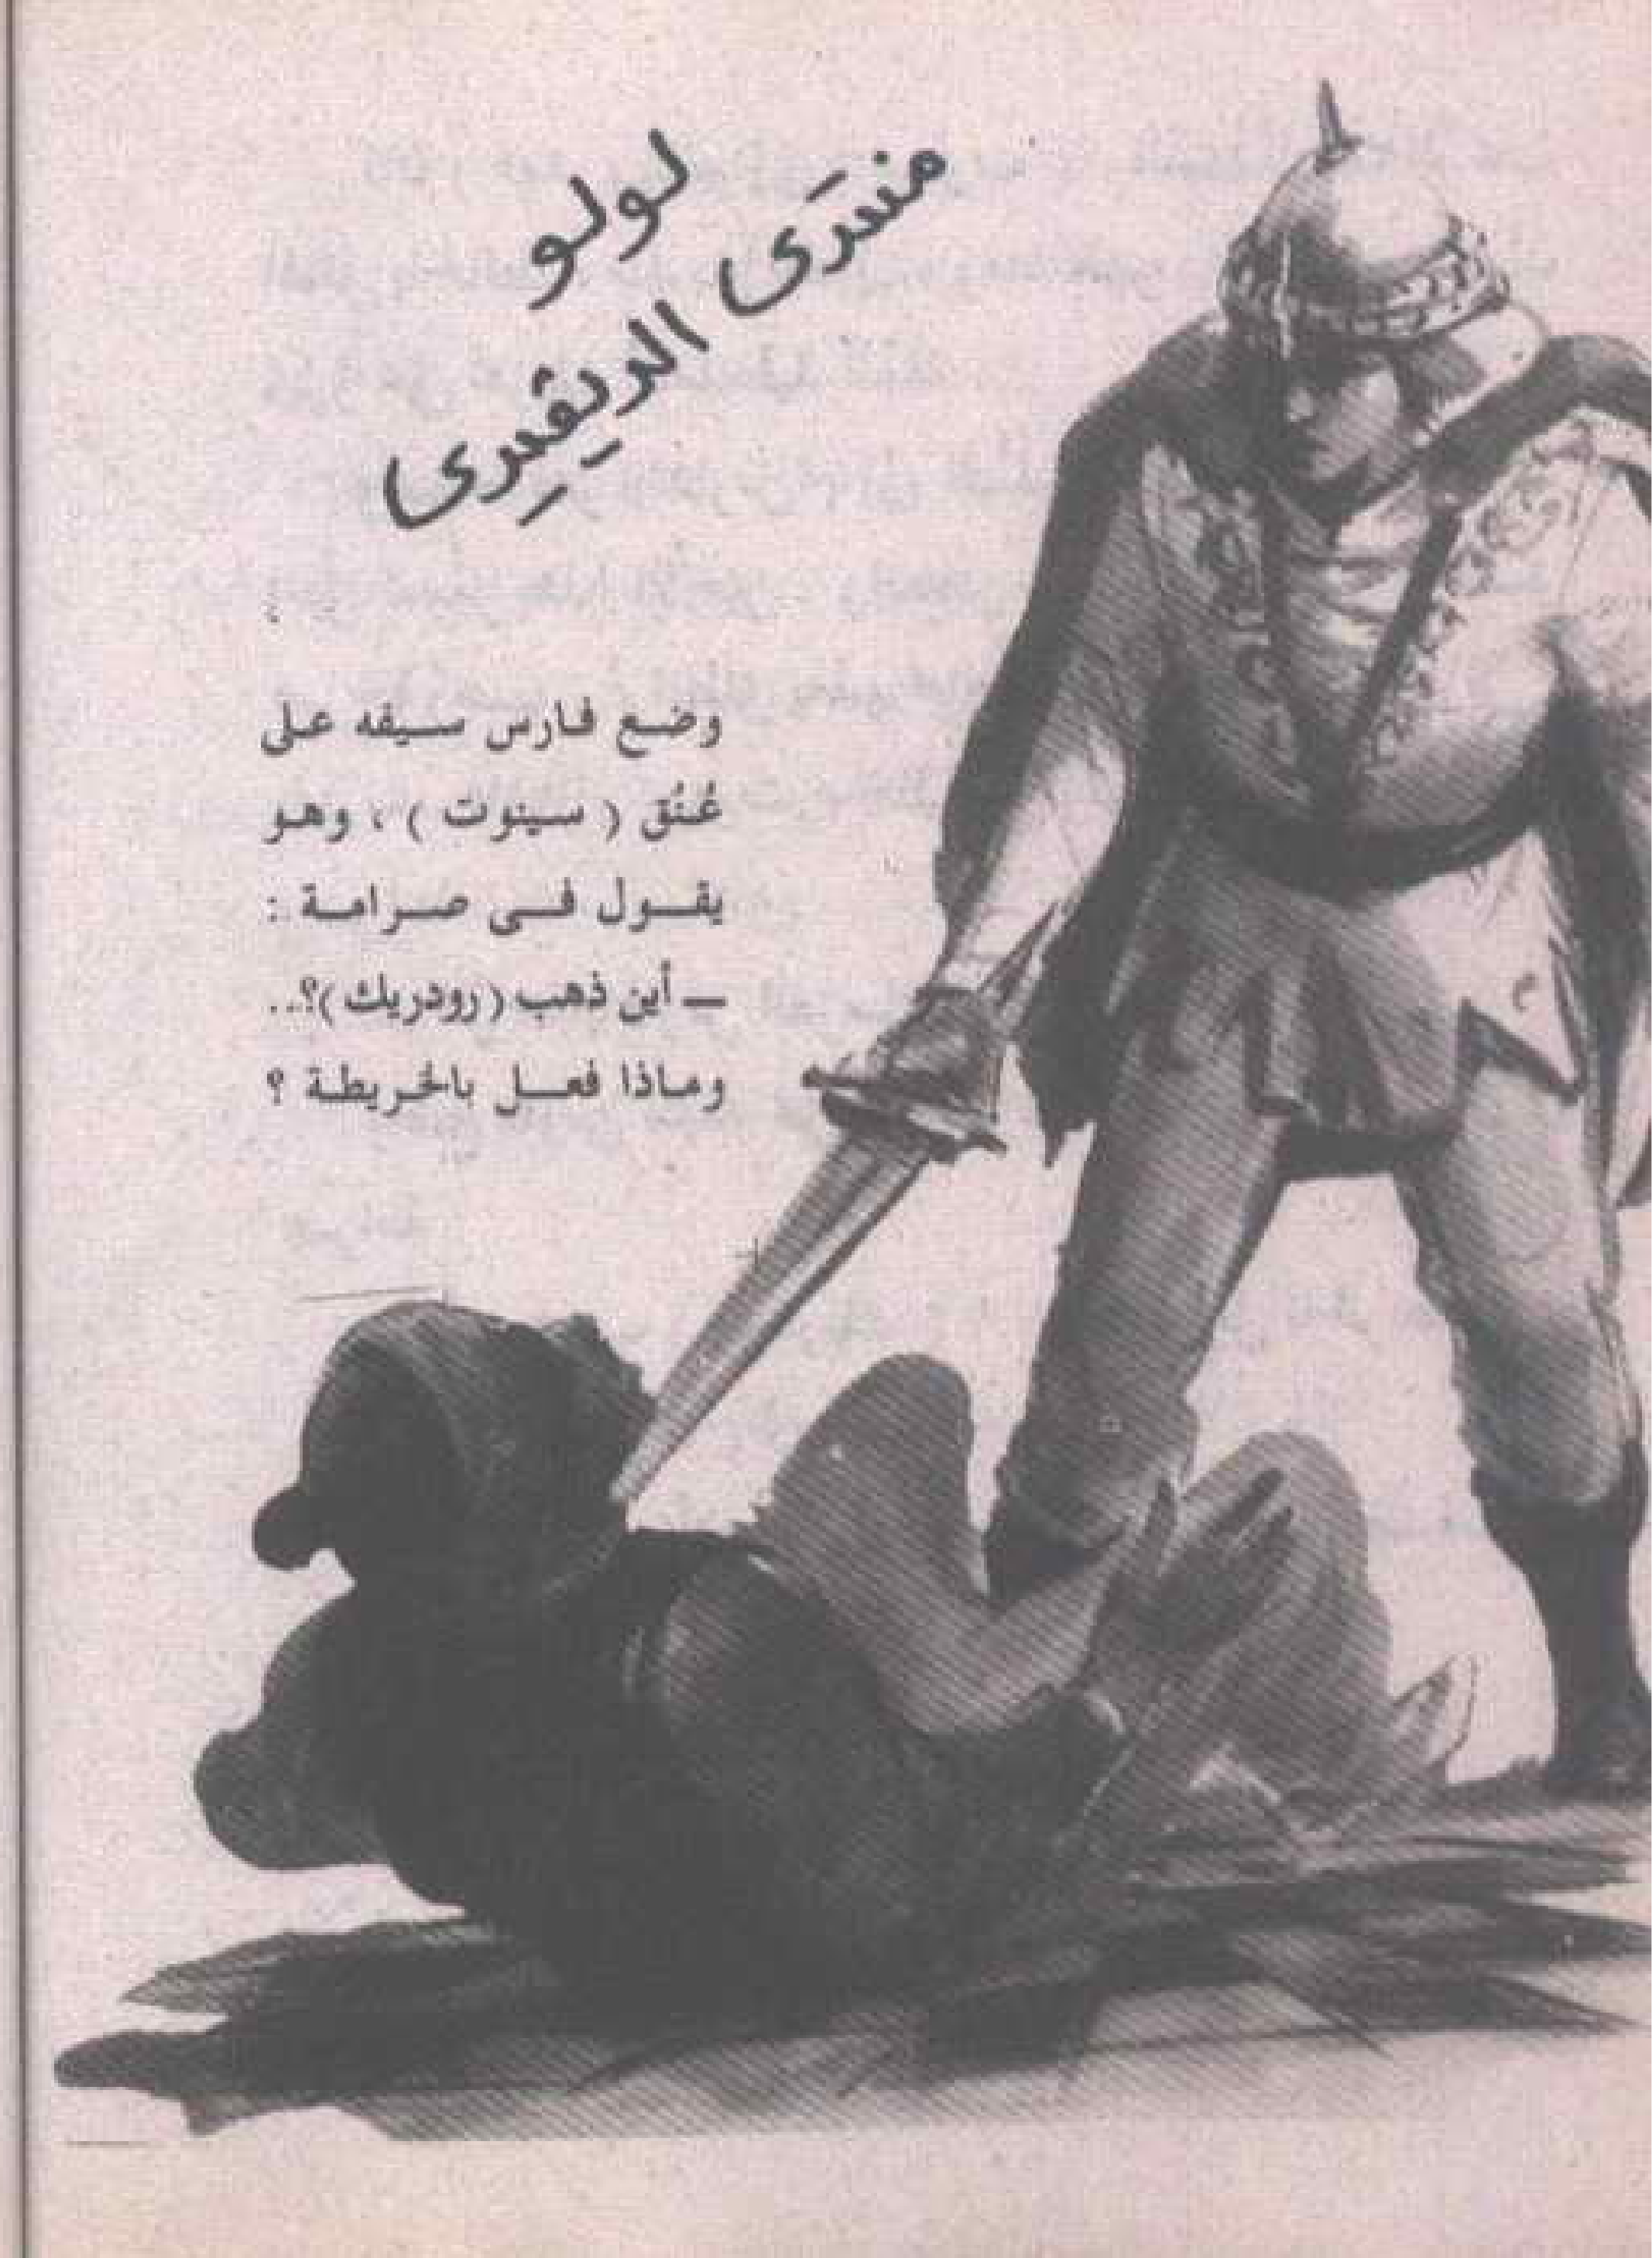 لولو
منتدى الديڤيدى
وضع فارس سيفه على
عُنُق ( سينوت ) ، وهو
يقول فى صرامة :
— أين ذهب ( رودريك )؟..
وماذا فعل بالخريطة ؟